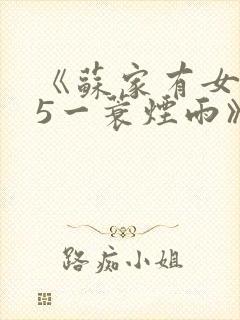 《蘇家有女
5一蓑煙雨》
路痴小姐